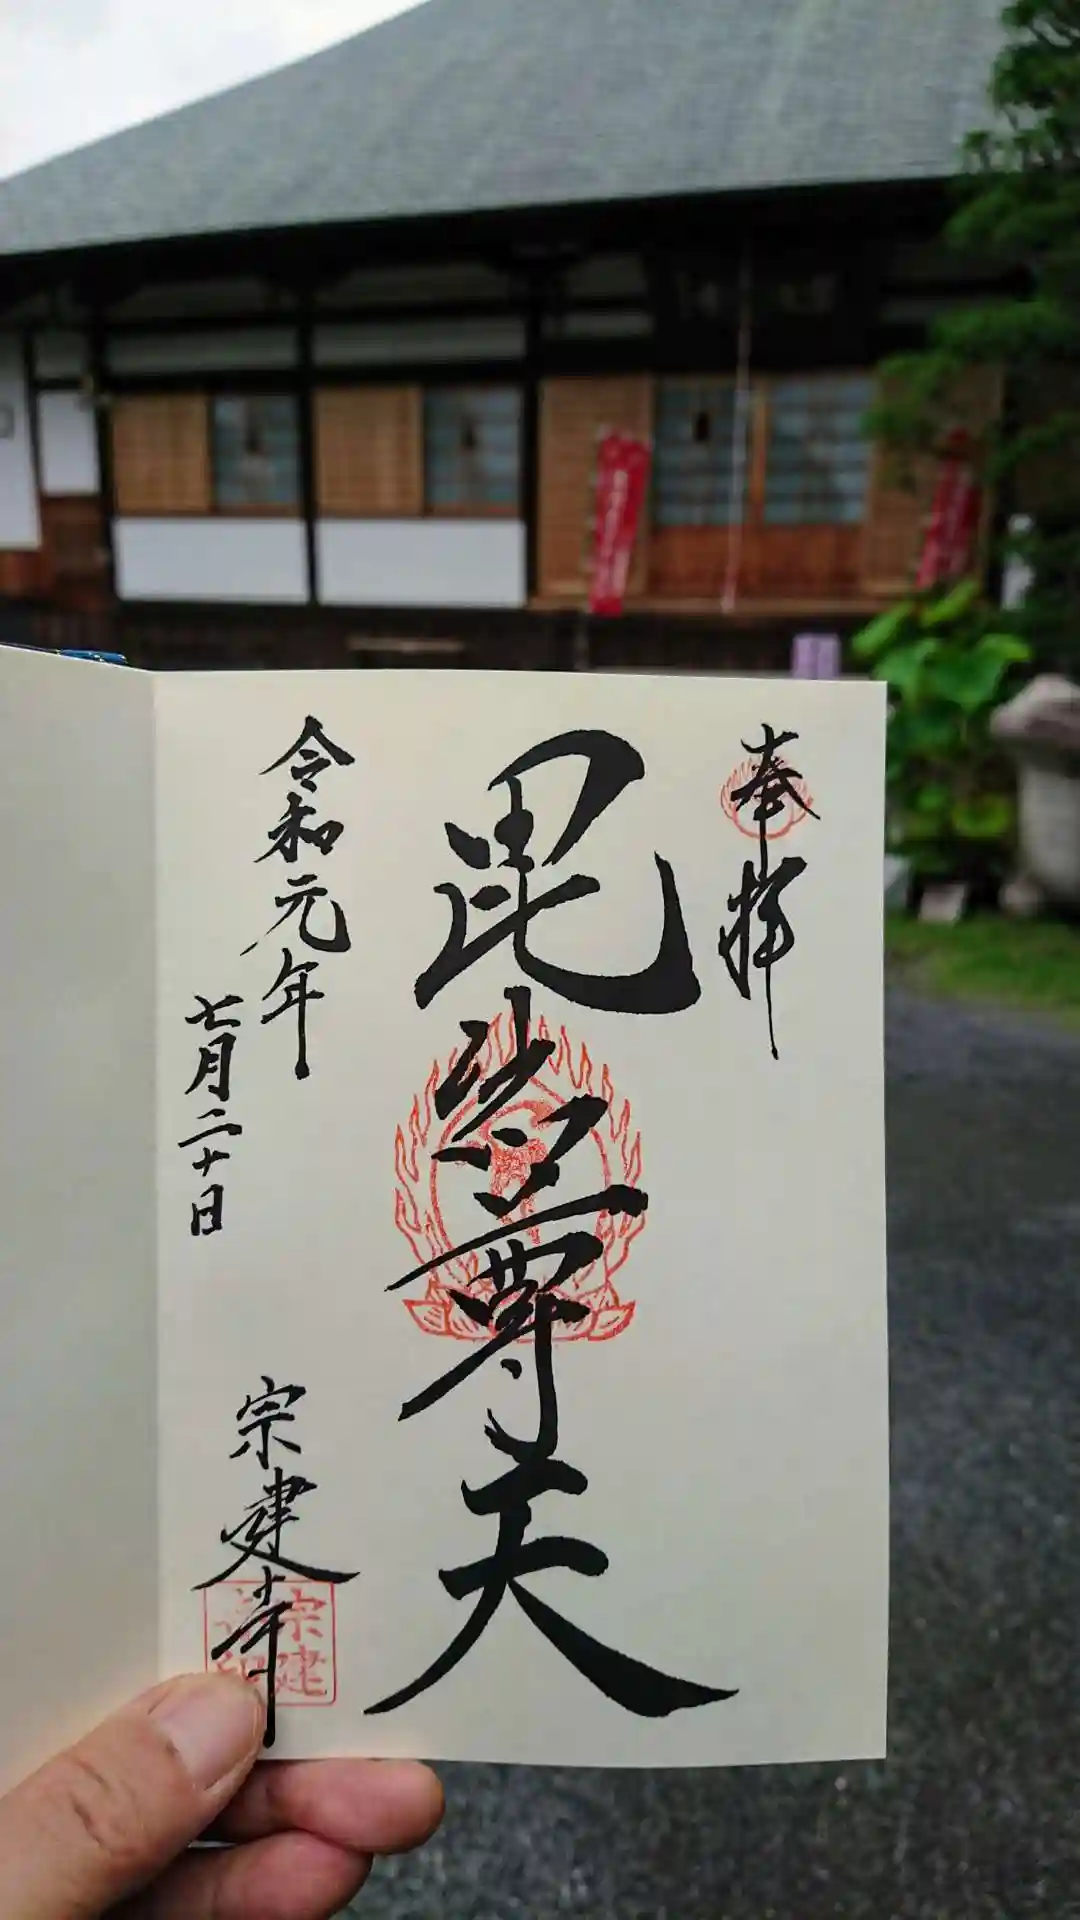 奉拝
毘沙門尊天
令和元年
七月二十日
宗建寺
宗建